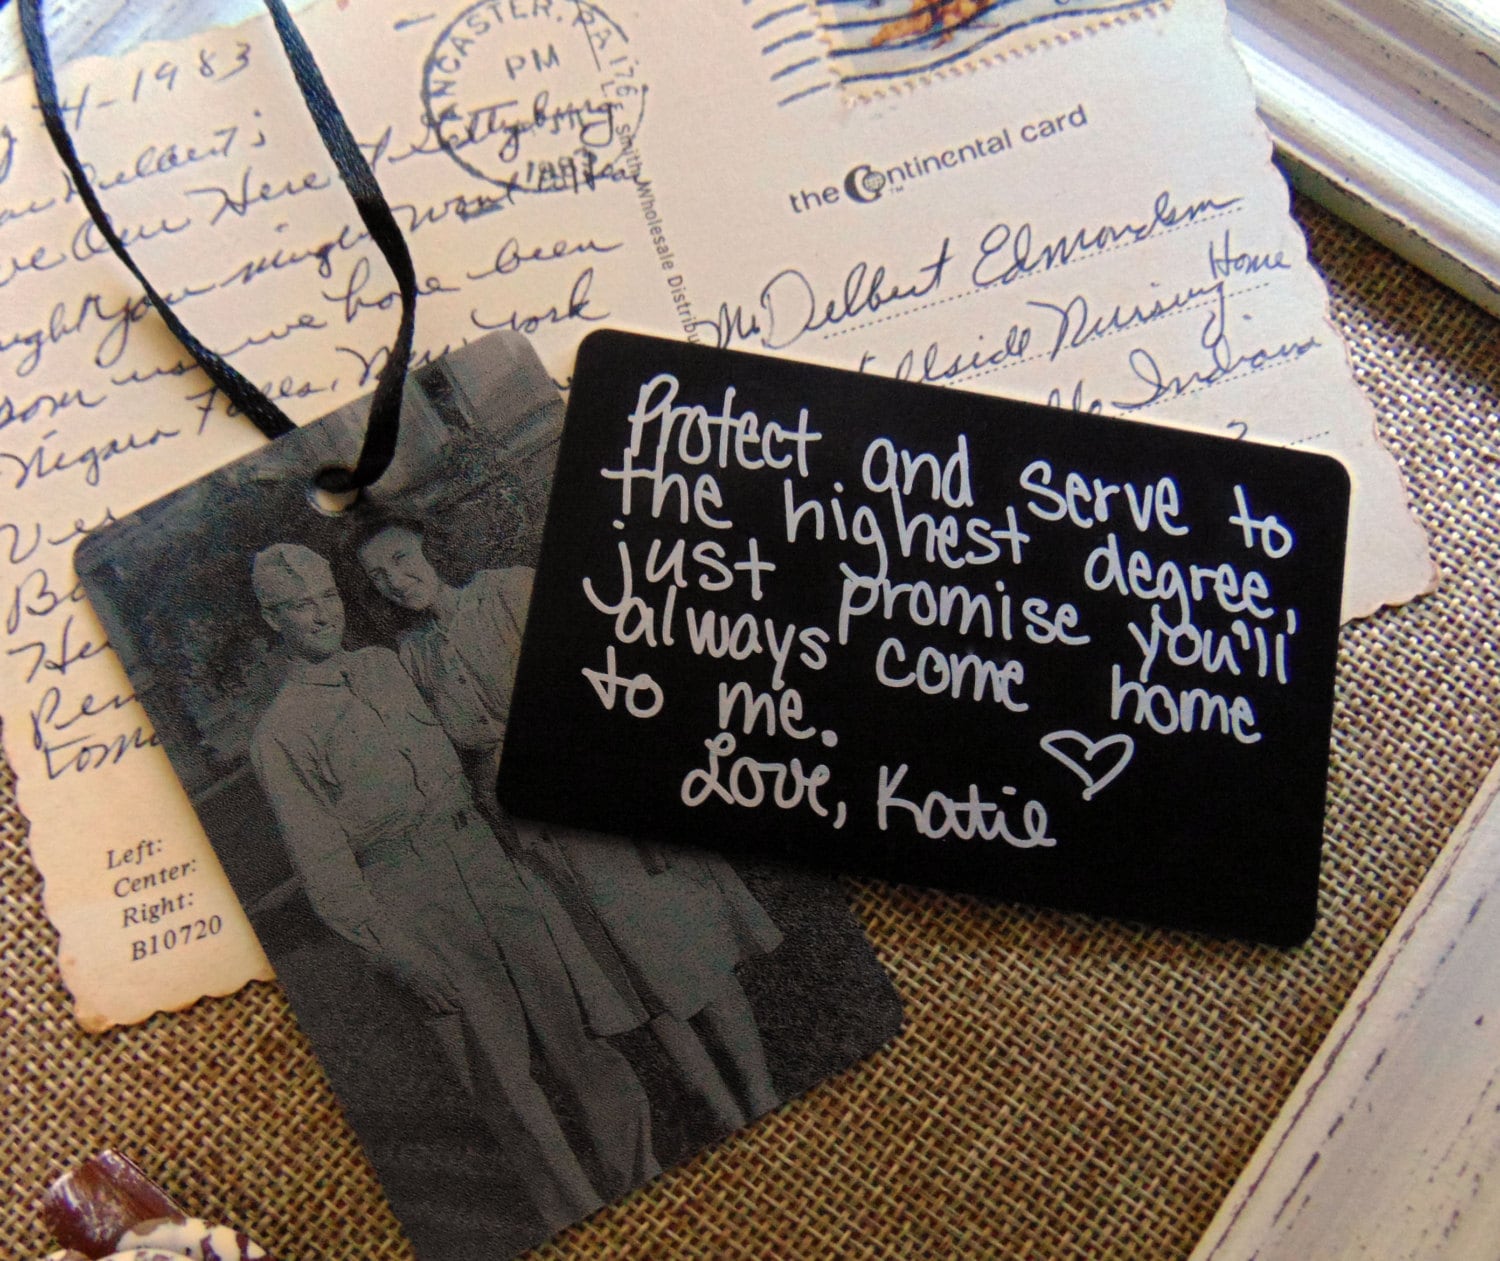 4-1983
Delbert;
Here Gettysburg
you might want
we have been
Niagara Falls, New York
LANCASTER, PA 176
PM
1983
Smith Wholesale Distribu
the Continental card
Mr Delbert Edmondson
llside Nursing Home
lle Indiana
Left:
Center:
Right:
B10720
Protect and serve to
the highest degree,
just promise you'll
always come home
to me.
Love, Katie